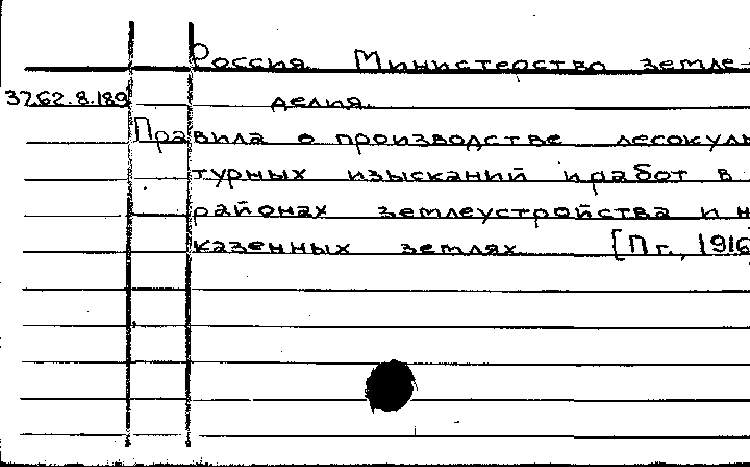 Россия. Министерство земле-
3762.8.189 делия.
Правила о производстве лесокуль
турных изысканий и работ в
районах землеустройства и н
казенных землях [Пг., 1916